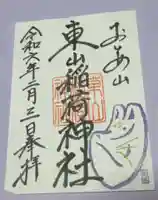 おあ山
東山稲荷神社
令和六年二月三日奉拝